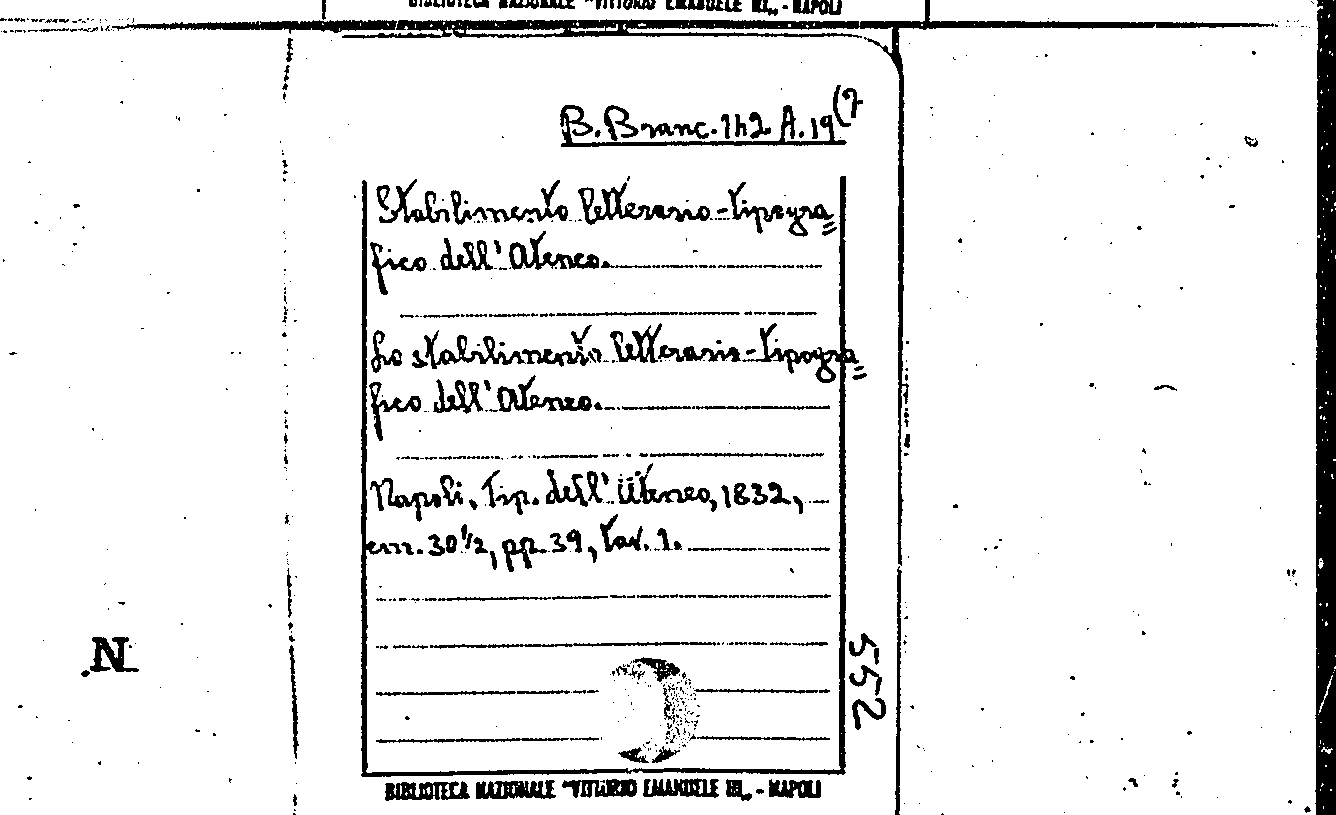 BIBLIOTECA NAZIONALE "VITTORIO EMANUELE III„ - NAPOLI
B. Branc. 142. A. 19(7
Stabilimento letterario-tipogra=
fico dell'Ateneo.
Lo stabilimento letterario-tipogra=
fico dell'Ateneo.
Napoli, Tip. dell'Ateneo, 1832,
cm. 30 1/2, pp. 39, tav. 1.
N
552
BIBLIOTECA NAZIONALE "VITTORIO EMANUELE III„ - NAPOLI